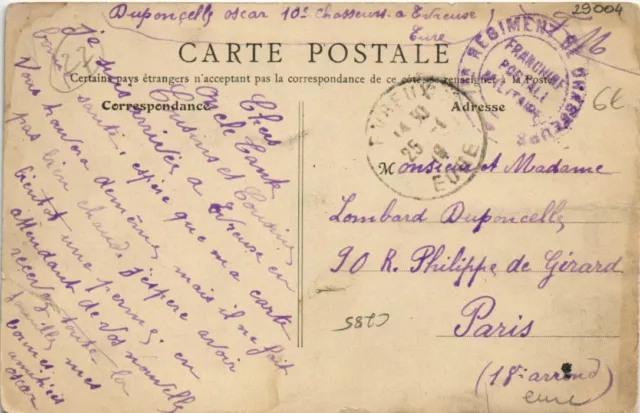 Duponcelle oscar 10e chasseurs a Evreuse
Eure
29004
F M
22
CARTE POSTALE
Certains pays étrangers n'acceptant pas la correspondance de ce côté, renseigner à la Poste
Correspondance
Adresse
REGIMENT DE CHASSEURS
FRANCHISE
POSTALE
MILITAIRE
6E
EVREUX
14 30
25 - 1
EURE
Chers
Oncle Tante
Cousins et Cousines
Je suis arrivés a Evreuse en
bonne santé, espère que ma carte
vous trouvera demême, mais il ne fait
pas bien chaud. J'espère avoir
bientôt une perme; en
attendant de vos nouvelles
recevez toute la
famille mes
bonnes amitiées
oscar
Monsieur et Madame
Lombard Duponcelle
90 R. Philippe de Gérard
Paris
(18e arrond
eure
C285